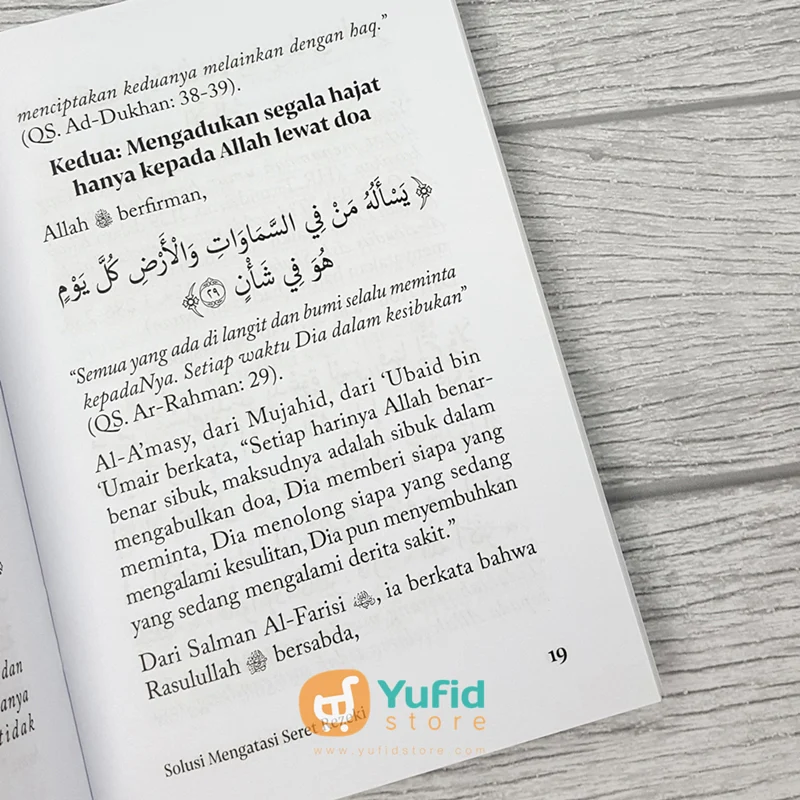 menciptakan keduanya melainkan dengan haq.”
(QS. Ad-Dukhan: 38-39).
Kedua: Mengadukan segala hajat
hanya kepada Allah lewat doa
Allah ﷻ berfirman,
﴿ يَسْأَلُهُ مَنْ فِي السَّمَاوَاتِ وَالْأَرْضِ كُلَّ يَوْمٍ
هُوَ فِي شَأْنٍ ٢٩ ﴾
“Semua yang ada di langit dan bumi selalu meminta
kepadaNya. Setiap waktu Dia dalam kesibukan”
(QS. Ar-Rahman: 29).
Al-A’masy, dari Mujahid, dari ‘Ubaid bin
‘Umair berkata, “Setiap harinya Allah benar-
benar sibuk, maksudnya adalah sibuk dalam
mengabulkan doa, Dia memberi siapa yang
meminta, Dia menolong siapa yang sedang
mengalami kesulitan, Dia pun menyembuhkan
yang sedang mengalami derita sakit.”
Dari Salman Al-Farisi, ia berkata bahwa
Rasulullah ﷺ bersabda,
19
Solusi Mengatasi Seret Rezeki
dan
anya
tidak
Yufid
store
www.yufidstore.com